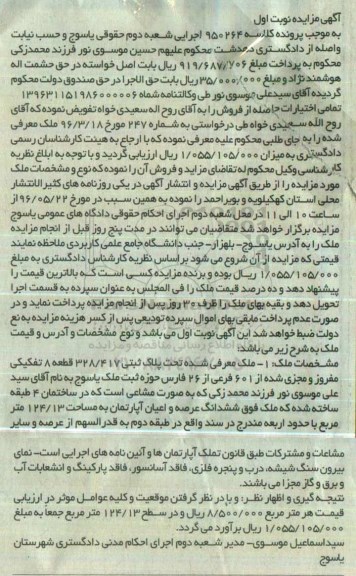 آگهی مزایده نوبت اول
به موجب پرونده کلاسه ۹۵۰۲۶۴ اجرایی شعبه دوم حقوقی یاسوج و حسب نیابت
واصله از دادگستری ممدشت محکوم علیهم حسین موسوی نور فرزند محمدزکی
محکوم به پرداخت مبلغ ۹۱۹/۶۸۷/۷۰۶ ریال بابت اصل خواسته در حق حشمت اله
هوشمند نژاد و مبلغ ۳۵/۰۰۰/۰۰۰ ریال بابت حق الاجرا در حق صندوق دولت محکوم
گردیده آقای سیدعلی موسوی نور طی وکالتنامه شماه ۱۳۹۶۳۱۱۵۱۹۸۶۰۰۰۰۰۶
تمامی اختیارات حاصله از فروش را به آقای روح اله سعیدی خواه تفویض نموده که آقای
روح الله سعیدی خواه طی درخواستی به شماره ۲۴۷ مورخ ۹۶/۳/۱۸ ملک معرفی
شده را به جای طلبی محکوم علیه معرفی نموده که با ارجاع به هیئت کارشناسان رسمی
دادگستری به میزان ۱/۰۵۵/۱۰۵/۰۰۰ ریال ارزیابی گردید و با توجه به ابلاغ نظریه
کارشناسی وکیل محکوم له تقاضای مزاید و فروش آن را نموده که نوع و مشخصات ملک
مورد مزایده را از طریق آگهی مزایده و انتشار آگهی در یکی روزنامه های کثیر الانتشار
محلی استان کهگیلویه و بویراحمد را نموده به همین سبب در مورخ ۹۶/۰۵/۲۲ از
ساعت ۱۰ الی ۱۱ در محل شعبه دوم اجرای احکام حقوقی دادگاه های عمومی یاسوج
مزایده برگزار خواهد شد متقاضیان می توانند در مدت پنج روز قبل از انجام مزایده
ملک را به آدرس یاسوج- بلهزار- جنب دانشگاه جامع علمی کاربردی ملاحظه نمایند
قیمتی که مزایده از آن شروع می شود براساس نظریه کارشناس دادگستری به مبلغ
۱/۰۵۵/۱۰۵/۰۰۰ ریال بوده و برنده مزایده کسی است که بالاترین قیمت را
پیشنهاد دهد و ده درصد قیمت ملک را فی المجلس به عنوان سپرده به قسمت اجرا
تحویل دهد و بقیه بهای ملک را ظرف ۳۰ روز پس از انجام مزایده پرداخت نماید و در
صورت عدم پرداخت مابقی بهای اموال سپرده تودیعی پس از کسر هزینه مزایده به نفع
دولت ضبط خواهد شد این آگهی نوبت اول می باشد و نوع مشخصات و آدرس و قیمت
ملک به شرح زیر می باشد:
مشخصات ملک: ۱- ملک معرفی شده تحت پلاک ثبتی ۳۲۸/۴۱۷ قطعه ۸ تفکیکی
مفروز و مجزی شده از ۶۰۱ فرعی از ۲۶ فارس حوزه ثبت ملک یاسوج به نام آقای سید
علی موسوی نور فرزند محمد زکی که به صورت مشاعی است که در ساختمان ۴ طبقه
ساخته شده که ملک فوق ششدانگ عرصه و اعیان آپارتمان به مساحت ۱۲۴/۱۳ متر
مربع با حدود اربعه مندرج در سند واقع در طبقه دوم به قدرالسهم از عرصه و سایر
مشاعات و مشترکات طبق قانون تملک آپارتمان ها و آئین نامه های اجرایی است- نمای
بیرون سنگ شیشه، درب و پنجره فلزی، فاقد آسانسور، فاقد پارکینگ و انشعابات آب
و برق و گاز مجزا می باشند.
نتیجه گیری و اظهار نظر: و با در نظر گرفتن موقعیت و کلیه عوامل موثر در ارزیابی
قیمت هر متر مربع ۸/۵۰۰/۰۰۰ ریال و در سطح ۱۲۴/۱۳ متر مربع جمعا به مبلغ
۱/۰۵۵/۱۰۵/۰۰۰ ریال برآورد می گردد.
سیداسماعیل موسوی- مدیر شعبه دوم اجرای احکام مدنی دادگستری شهرستان
یاسوج